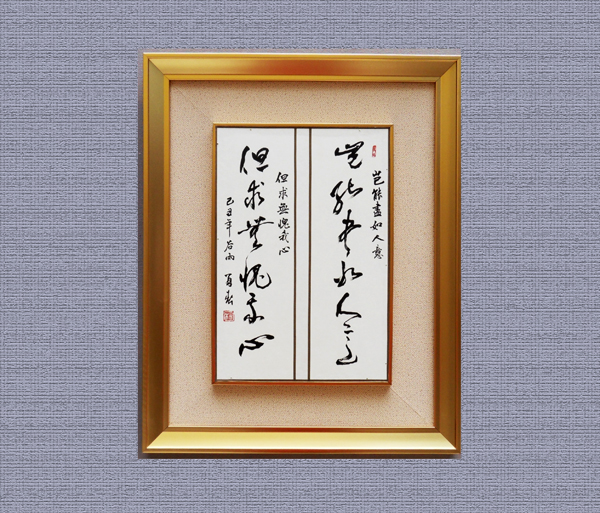 豈能盡如人意
豈能盡如人意
但求無愧我心
但求無愧我心
己丑年谷雨